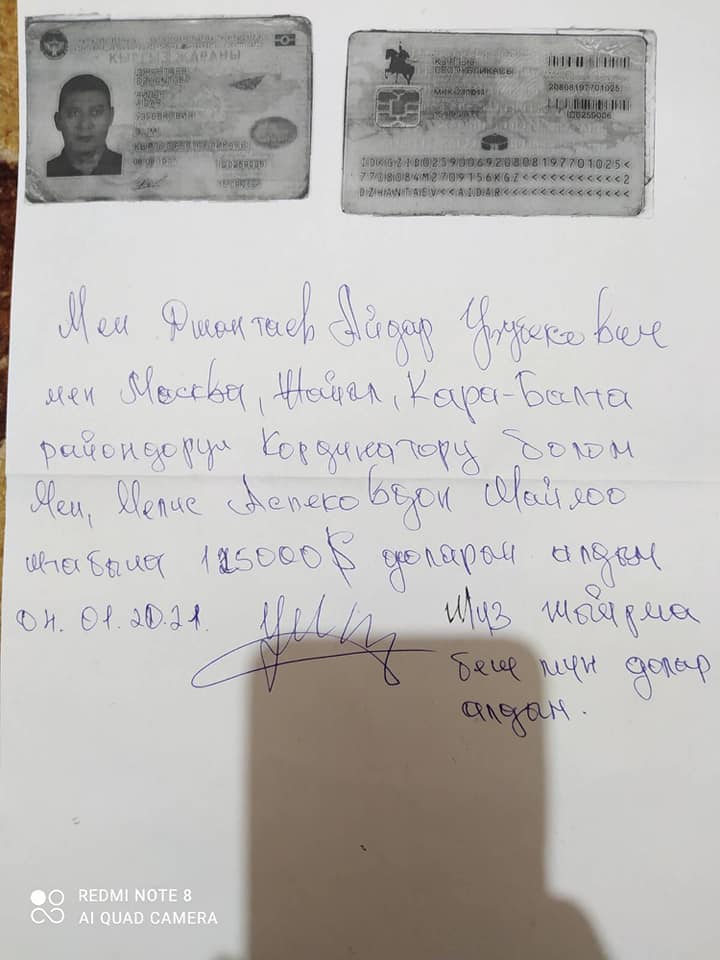 КЫРГЫЗ ЖАРАНЫ
КЫРГЫЗ
РЕСПУБЛИКАСЫ
20808197701025
ID0259006
IDKGZID0259006920808197701025<
7708084M2709156KGZ<<<<<<<<<<<2
DZHANTAEV<<AIDAR<<<<<<<<<<<<<<
Мен Джантаев Айдар Улугбекович
мен Москва, Жайыл, Кара-Балта
райондорун Кординатору болом
Мен, Мелис Аспековдон Майлоо
жабыла 125000$ доларын алдым
04.01.2021. Жүз жыйрма
беш миң долар
алдым.
REDMI NOTE 8
AI QUAD CAMERA